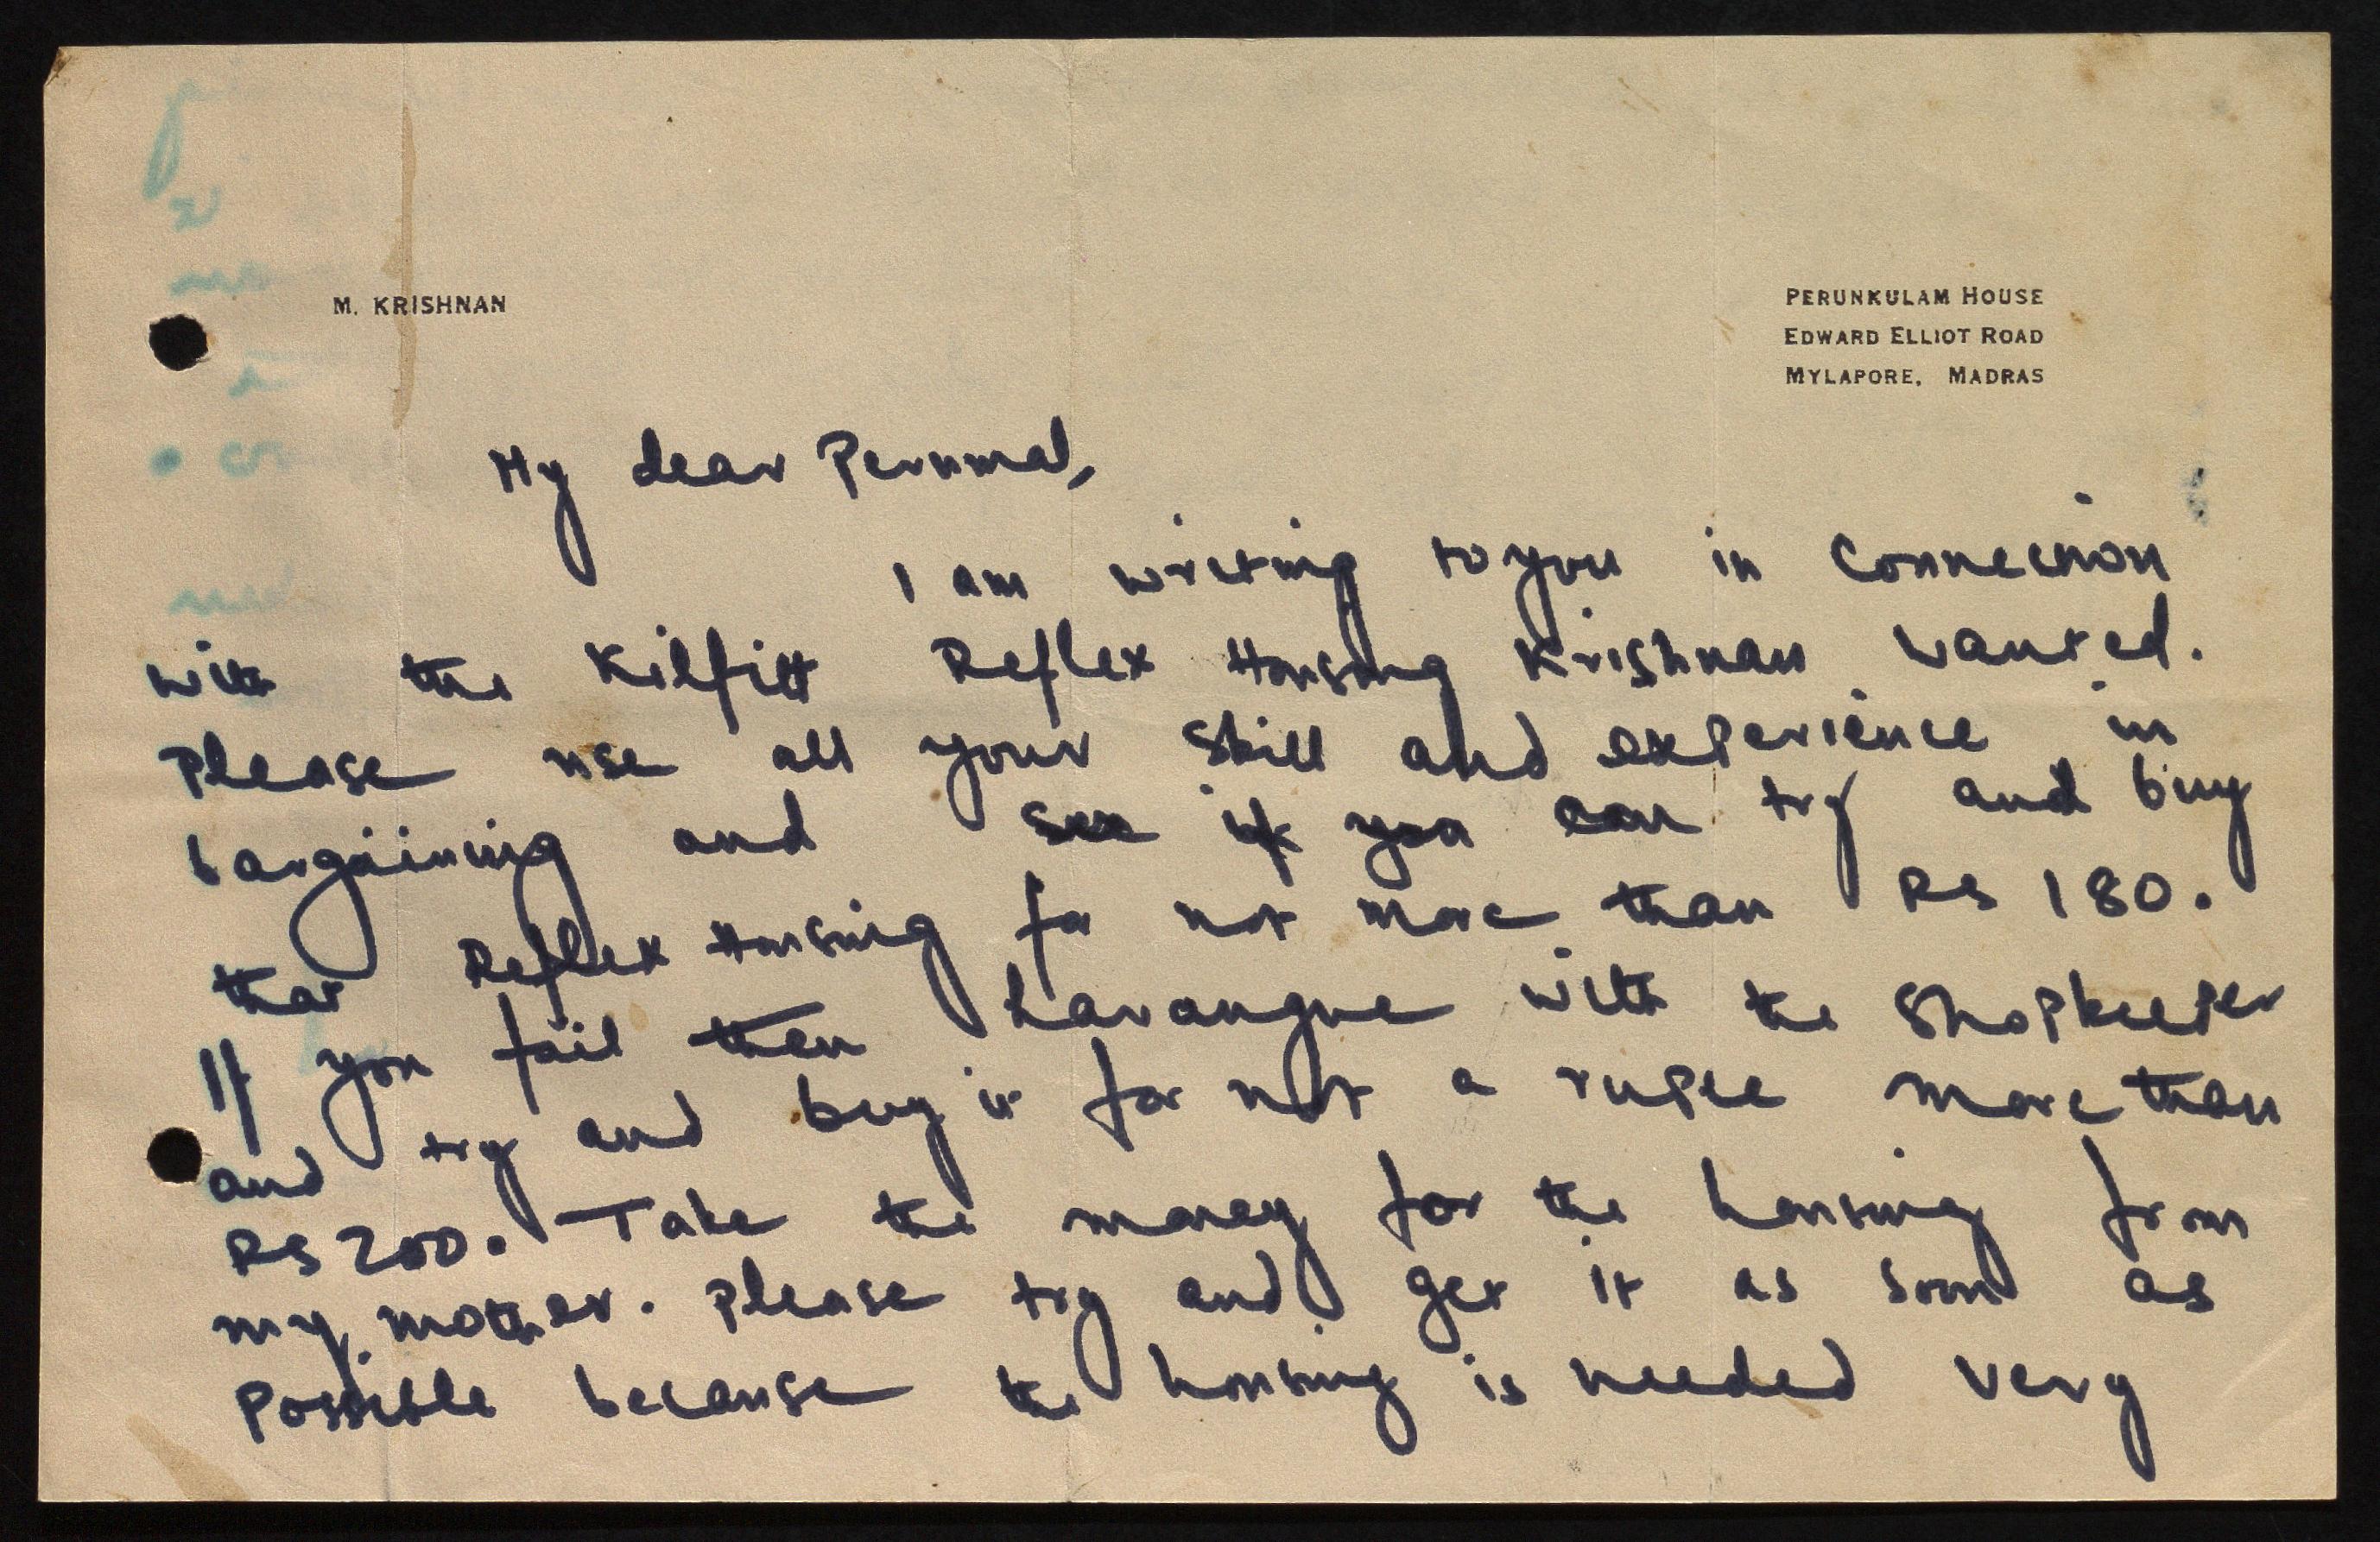 M. KRISHNAN
PERUNKULAM HOUSE
EDWARD ELLIOT ROAD
MYLAPORE, MADRAS
My dear Perumal,
I am writing to you in connection
with the Kilfitt Reflex Housing Krishnan wanted.
Please use all your skill and experience in
bargaining and see if you can try and buy
that Reflex Housing for not more than Rs 180.
If you fail then harangue with the shopkeeper
and try and buy it for not a rupee more than
Rs 200. Take the money for the housing from
my mother. Please try and get it as soon as
possible because the housing is needed very